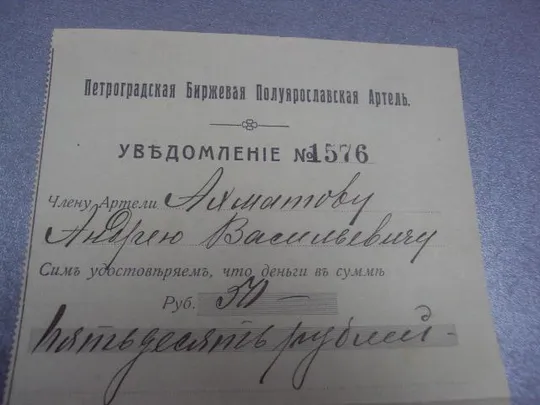 Петроградская Биржевая Полуярославская Артель.
УВѢДОМЛЕНІЕ №1576
Члену Артели Ахматову
Андрею Васильевичу
Симъ удостовѣряемъ, что деньги въ суммѣ
Руб. 50 —
Пятьдесятъ рублей -